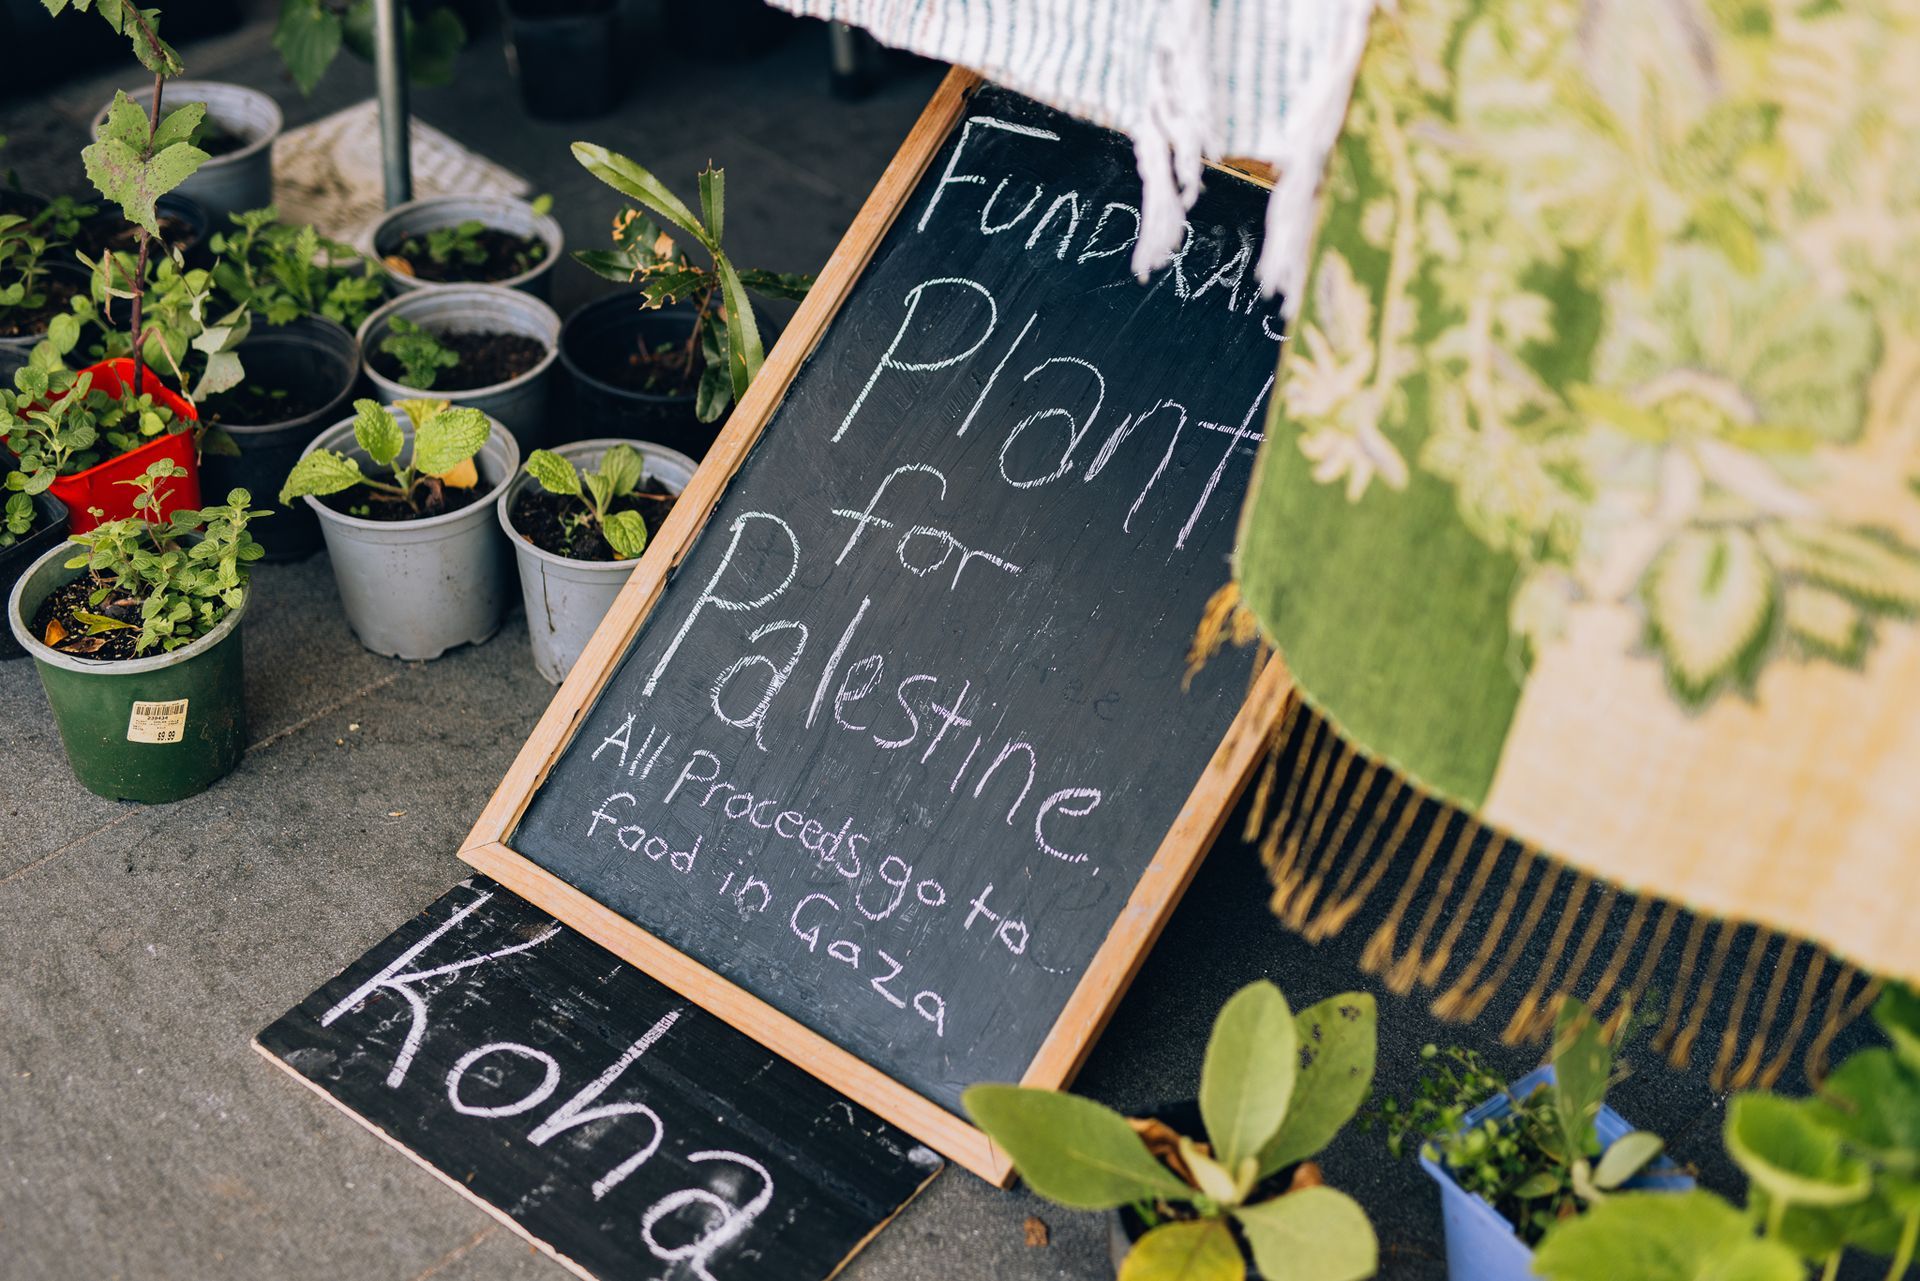 Plant
for
Palestine.
All Proceeds go to
food in Gaza
Koha
239434
$9.99